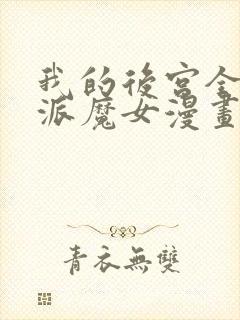 我的後宮全
派魔女漫畫
青衣無雙